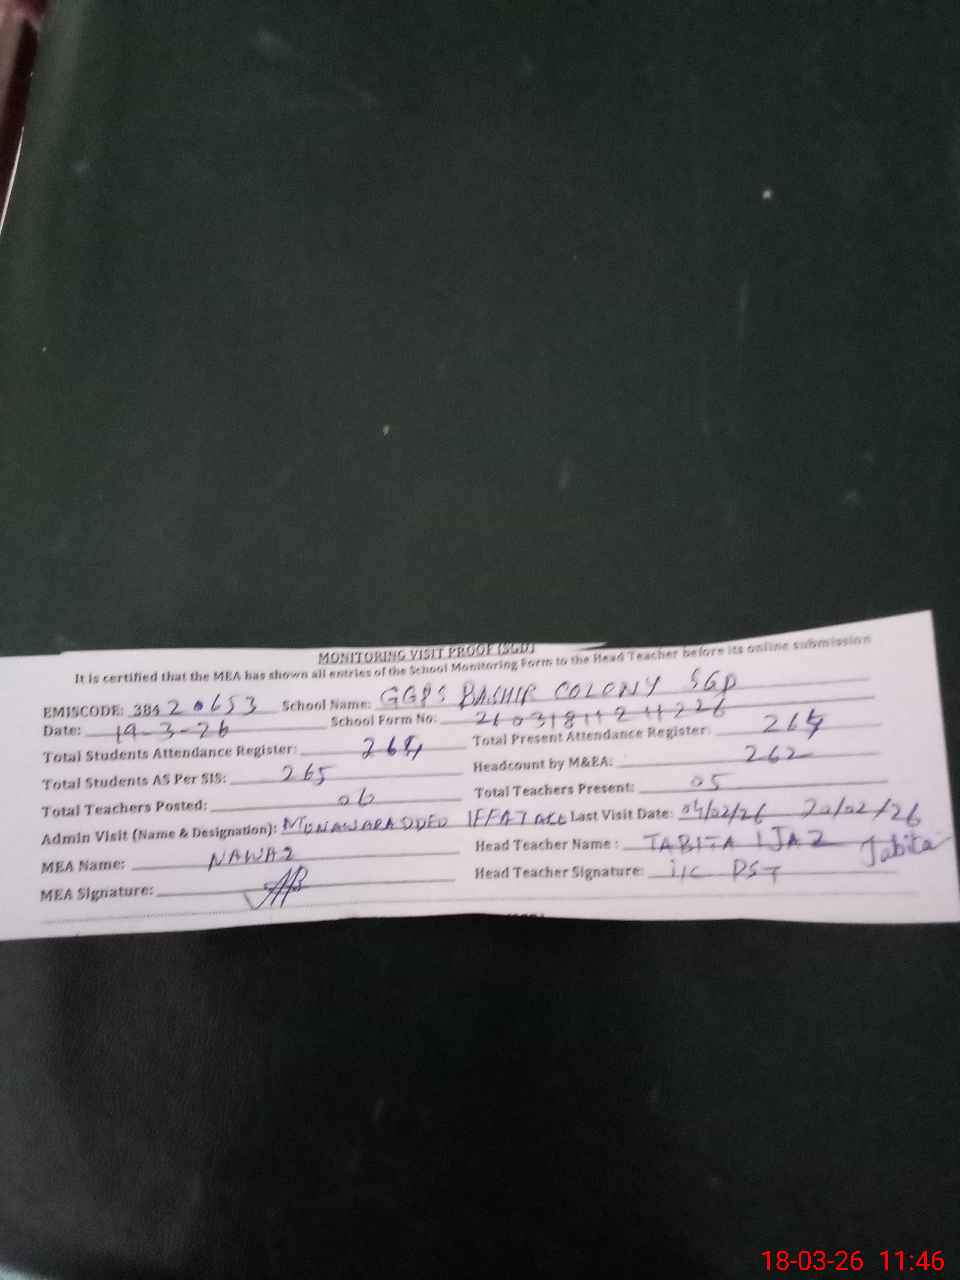 MONITORING VISIT PROOF (SGD)
It is certified that the MEA has shown all entries of the School Monitoring Form to the Head Teacher before its online submission
EMISCODE: 38420653 School Name: GGPS BASHIR COLONY SGD
Date: 19-3-26 School Form No:
Total Students Attendance Register: Total Present Attendance Register:
Total Students AS Per SIS: 265 Headcount by M&EA: 262
Total Teachers Posted: 06 Total Teachers Present: 05
Admin Visit (Name & Designation): Last Visit Date: 04/02/26 20/02/26
MEA Name: NAWAZ Head Teacher Name: TABITA IJAZ Tabita
MEA Signature: Head Teacher Signature: I/C PST
18-03-26 11:46